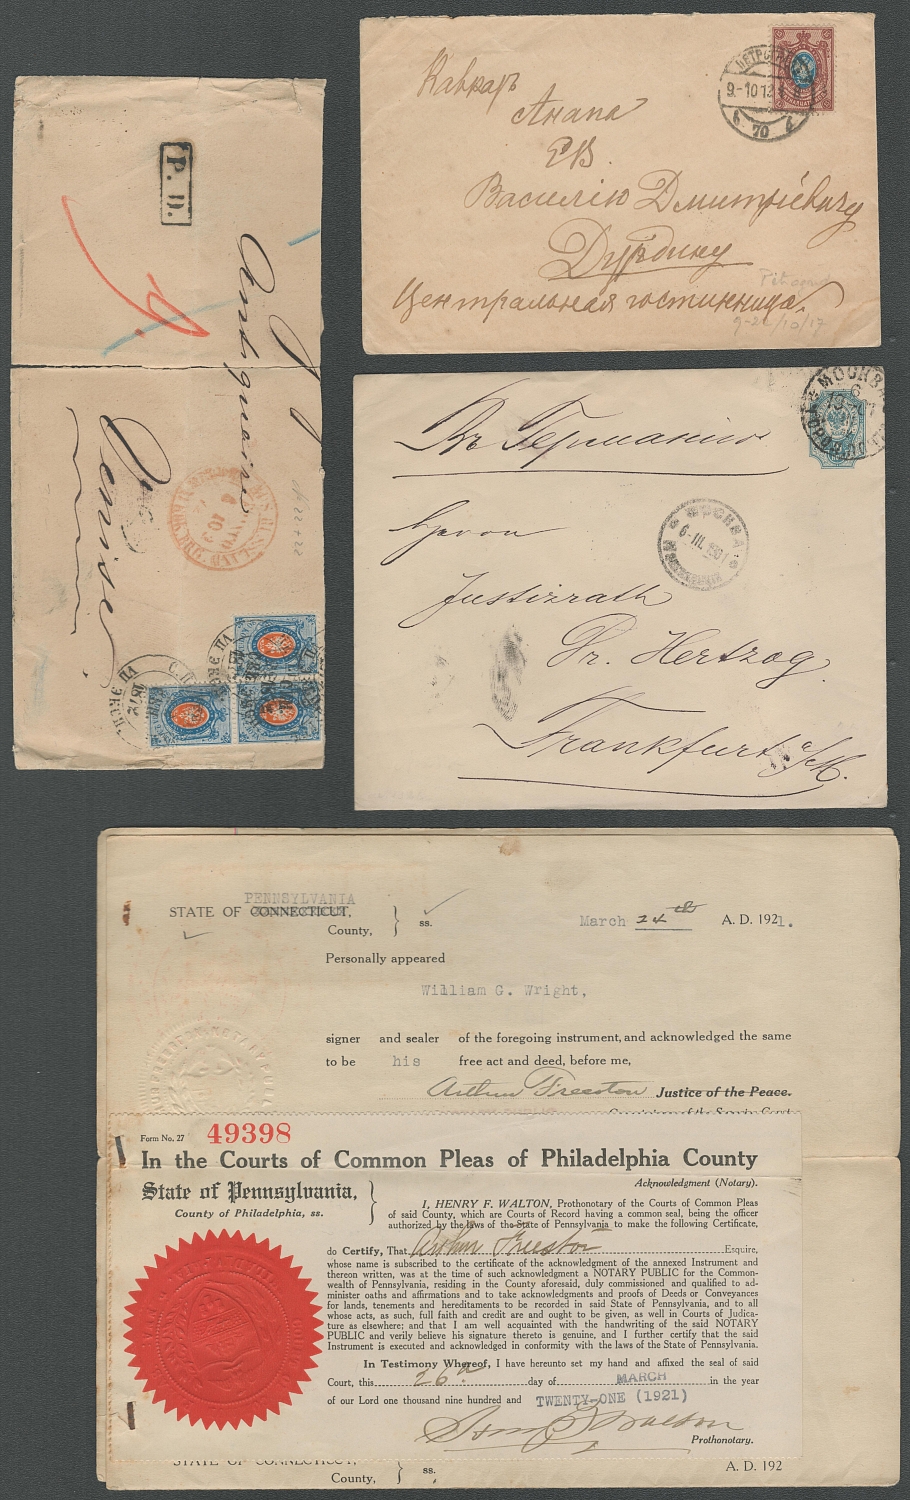 P. D.
Venise
Кавказъ
Анапа
ЕВ.
Василію Дмитріевичу
Дурдину
Центральная гостинница.
9-10 12
70
9-22/10/17
Въ Германію
МОСКВА
Herrn
6-III
Justizrath
Dr. Hertzog
Frankfurt a/M.
PENNSYLVANIA
STATE OF CONNECTICUT,
County,
ss.
March 24th A. D. 1921.
Personally appeared
William G. Wright,
signer and sealer of the foregoing instrument, and acknowledged the same
to be his free act and deed, before me,
Arthur Freeston Justice of the Peace.
Form No. 27 49398
In the Courts of Common Pleas of Philadelphia County
Acknowledgment (Notary).
State of Pennsylvania,
County of Philadelphia, ss.
I, HENRY F. WALTON, Prothonotary of the Courts of Common Pleas
of said County, which are Courts of Record having a common seal, being the officer
authorized by the laws of the State of Pennsylvania to make the following Certificate,
do Certify, That Arthur Freeston Esquire,
whose name is subscribed to the certificate of the acknowledgment of the annexed Instrument and
thereon written, was at the time of such acknowledgment a NOTARY PUBLIC for the Common-
wealth of Pennsylvania, residing in the County aforesaid, duly commissioned and qualified to ad-
minister oaths and affirmations and to take acknowledgments and proofs of Deeds or Conveyances
for lands, tenements and hereditaments to be recorded in said State of Pennsylvania, and to all
whose acts, as such, full faith and credit are and ought to be given, as well in Courts of Judica-
ture as elsewhere; and that I am well acquainted with the handwriting of the said NOTARY
PUBLIC and verily believe his signature thereto is genuine, and I further certify that the said
Instrument is executed and acknowledged in conformity with the laws of the State of Pennsylvania.
In Testimony Whereof, I have hereunto set my hand and affixed the seal of said
Court, this 26th day of MARCH in the year
of our Lord one thousand nine hundred and TWENTY-ONE (1921)
Henry F Walton
Prothonotary.
STATE OF CONNECTICUT,
County,
ss.
A. D. 192